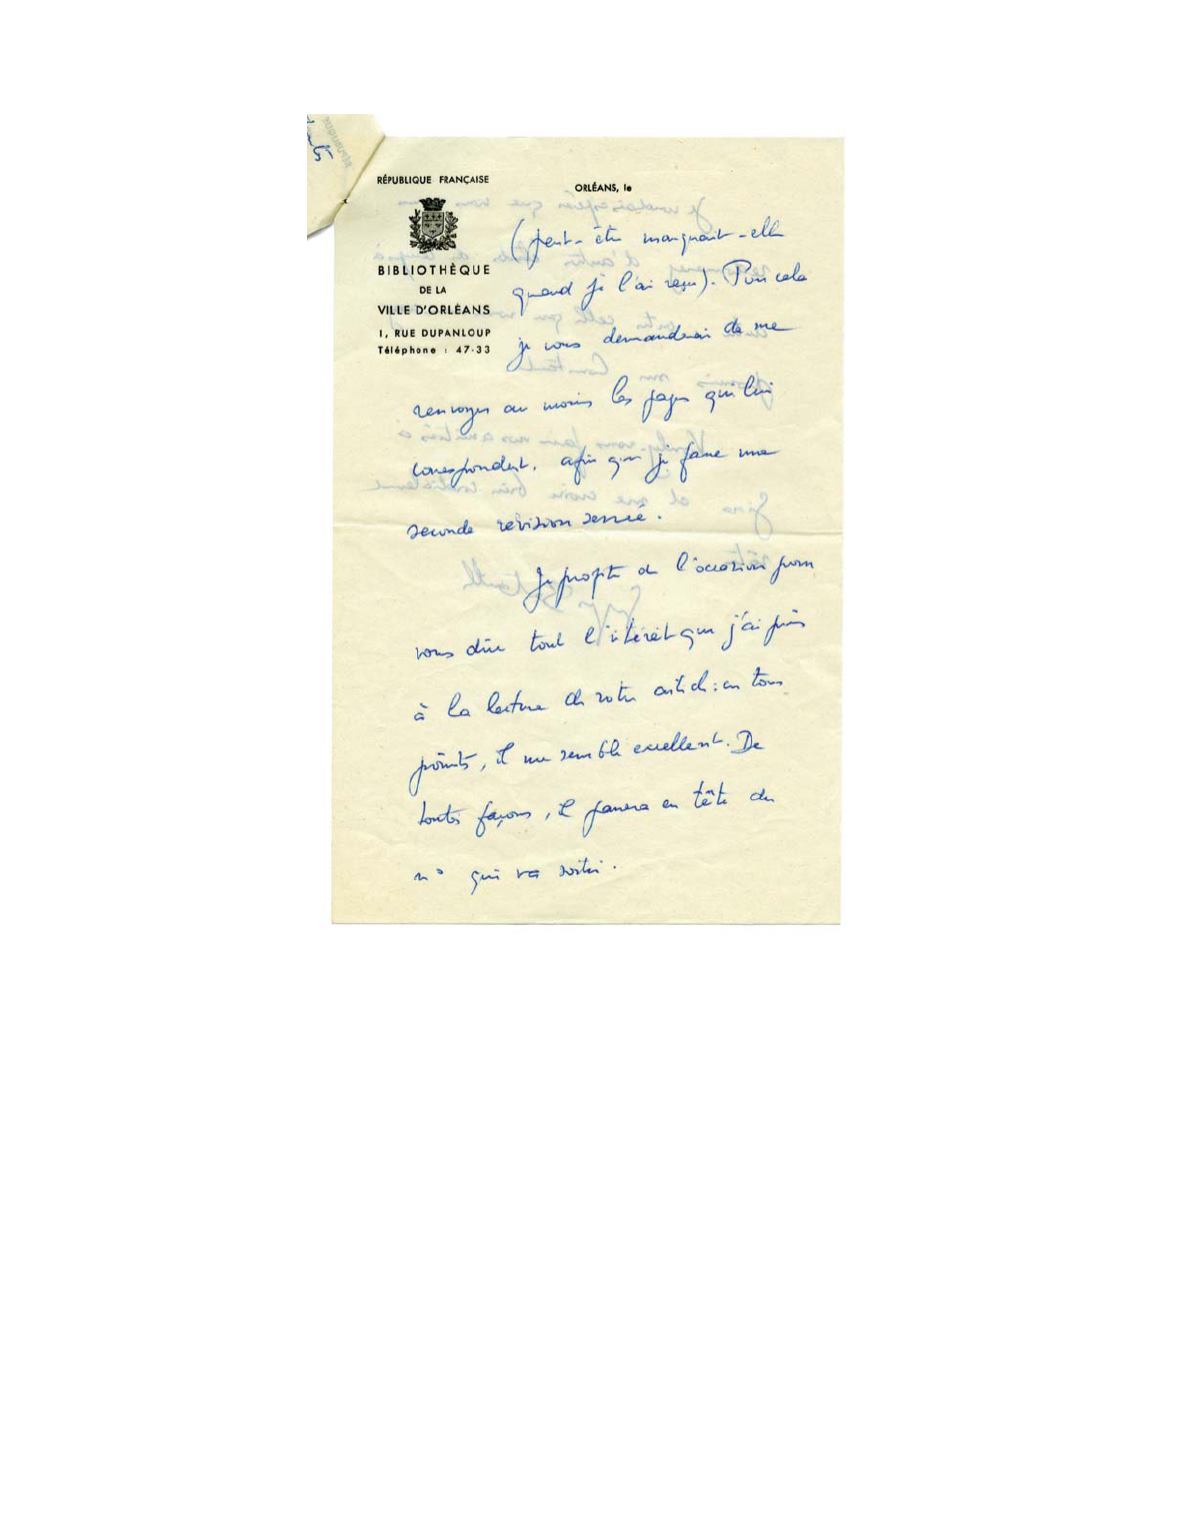 RÉPUBLIQUE FRANÇAISE
BIBLIOTHÈQUE
DE LA
VILLE D'ORLÉANS
1, RUE DUPANLOUP
Téléphone : 47-33
ORLÉANS, le
(peut-être manquait-elle
quand je l'ai reçu). Pour cela
je vous demanderai de me
renvoyer au moins les pages qui lui
correspondent, afin que je fasse une
seconde révision serrée.
Je profite de l'occasion pour
vous dire tout l'intérêt que j'ai pris
à la lecture de votre article : en tous
points, il me semble excellent. De
toutes façons, il passera en tête du
n° qui va sortir.